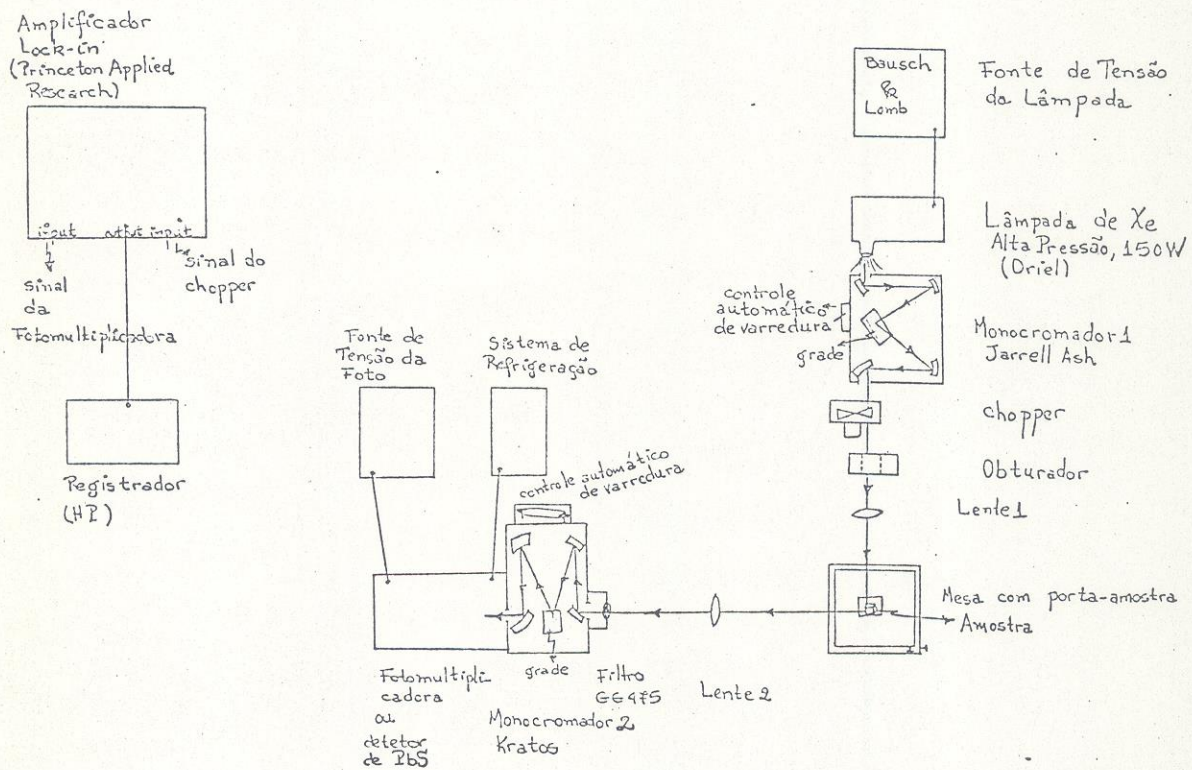 Amplificador
Lock-in
(Princeton Applied
Research)
input output input
sinal
da
Fotomultiplicadora
sinal do
chopper
Registrador
(HP)
Fonte de
Tensão da
Foto
Sistema de
Refrigeração
controle automático
de varredura
Fotomultipli-
cadora
ou
detetor
de PbS
grade
Monocromador 2
Kratos
Filtro
GG475
Lente 2
Bausch
&
Lomb
Fonte de Tensão
da Lâmpada
Lâmpada de Xe
Alta Pressão, 150W
(Oriel)
controle
automático
de varredura
grade
Monocromador 1
Jarrell Ash
chopper
Obturador
Lente 1
Mesa com porta-amostra
Amostra